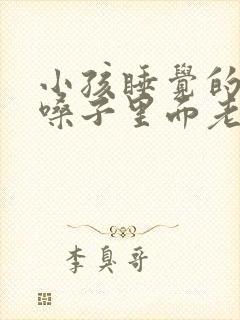 小孩睡覺的
嗓子里面老
李臭哥